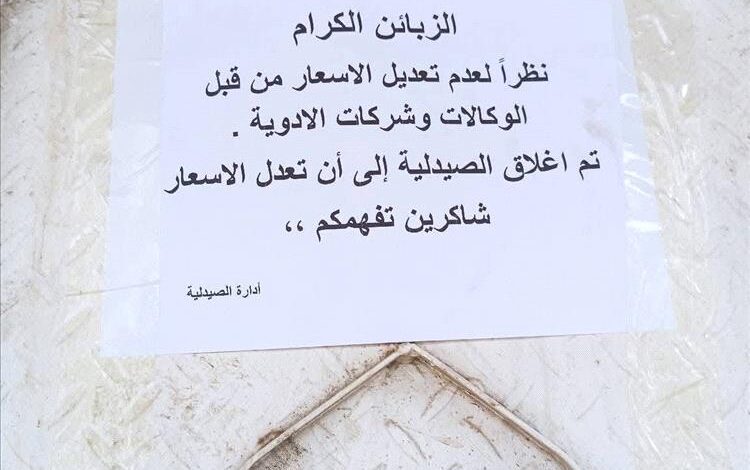 الزبائن الكرام
نظراً لعدم تعديل الاسعار من قبل
الوكالات وشركات الادوية .
تم اغلاق الصيدلية إلى أن تعدل الاسعار
شاكرين تفهمكم ،،
أدارة الصيدلية